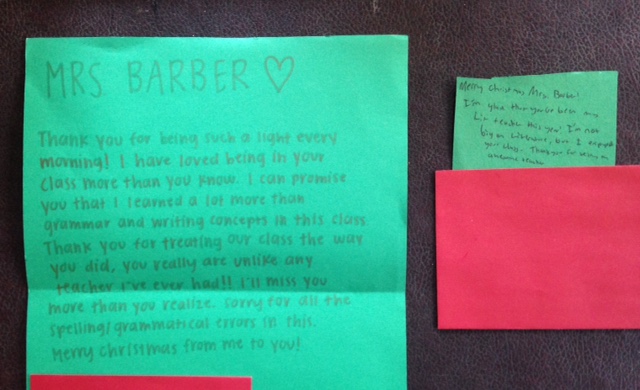 MRS BARBER ♡
Thank you for being such a light every
morning! I have loved being in your
class more than you know. I can promise
you that I learned a lot more than
grammar and writing concepts in this class.
Thank you for treating our class the way
you did, you really are unlike any
teacher I've ever had!! I'll miss you
more than you realize. sorry for all the
spelling/grammatical errors in this.
Merry christmas from me to you!
Merry Christmas Mrs. Barber!
I'm glad that you've been my
Lit teacher this year! I'm not
big on literature, but I enjoyed
your class. Thank you for being an
awesome teacher